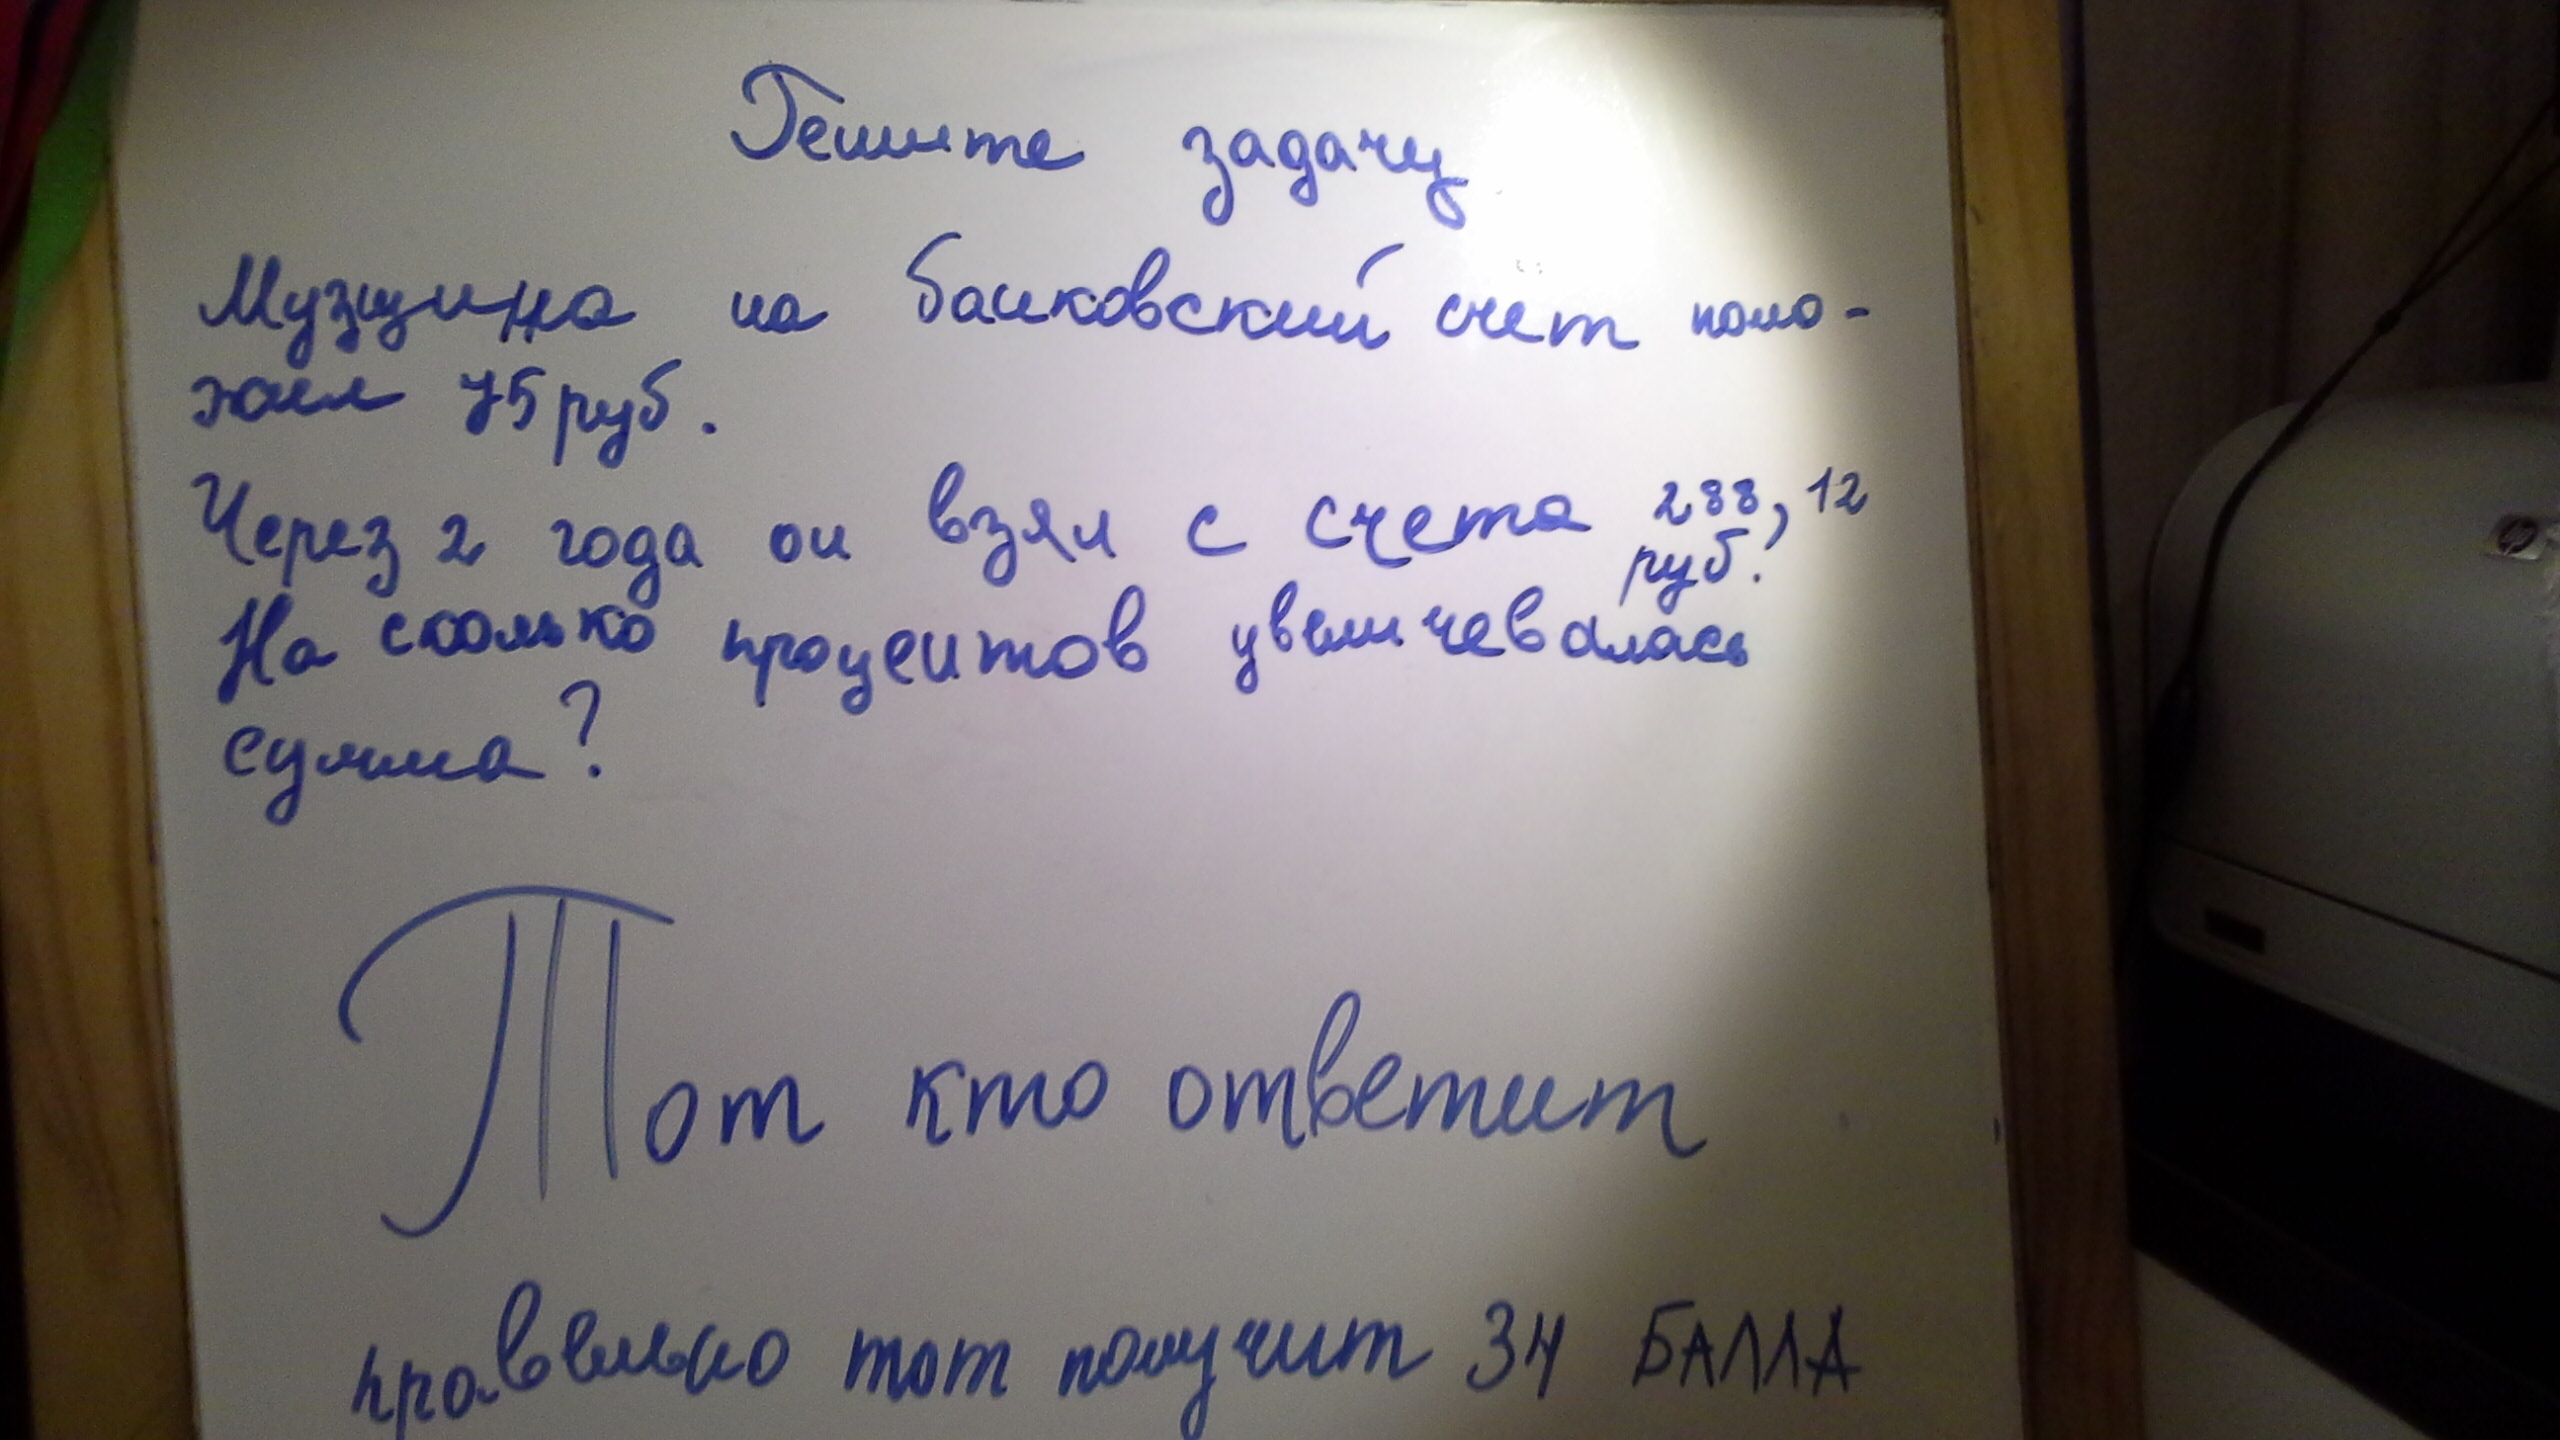 Решите задачу
Музщина на банковский счет поло-
жил 75 руб.
Через 2 года он взял с счета 288,12
руб.
На сколько процентов увеличевалась
сумма?
Тот кто ответит
правельно тот получит 34 БАЛЛА
hp